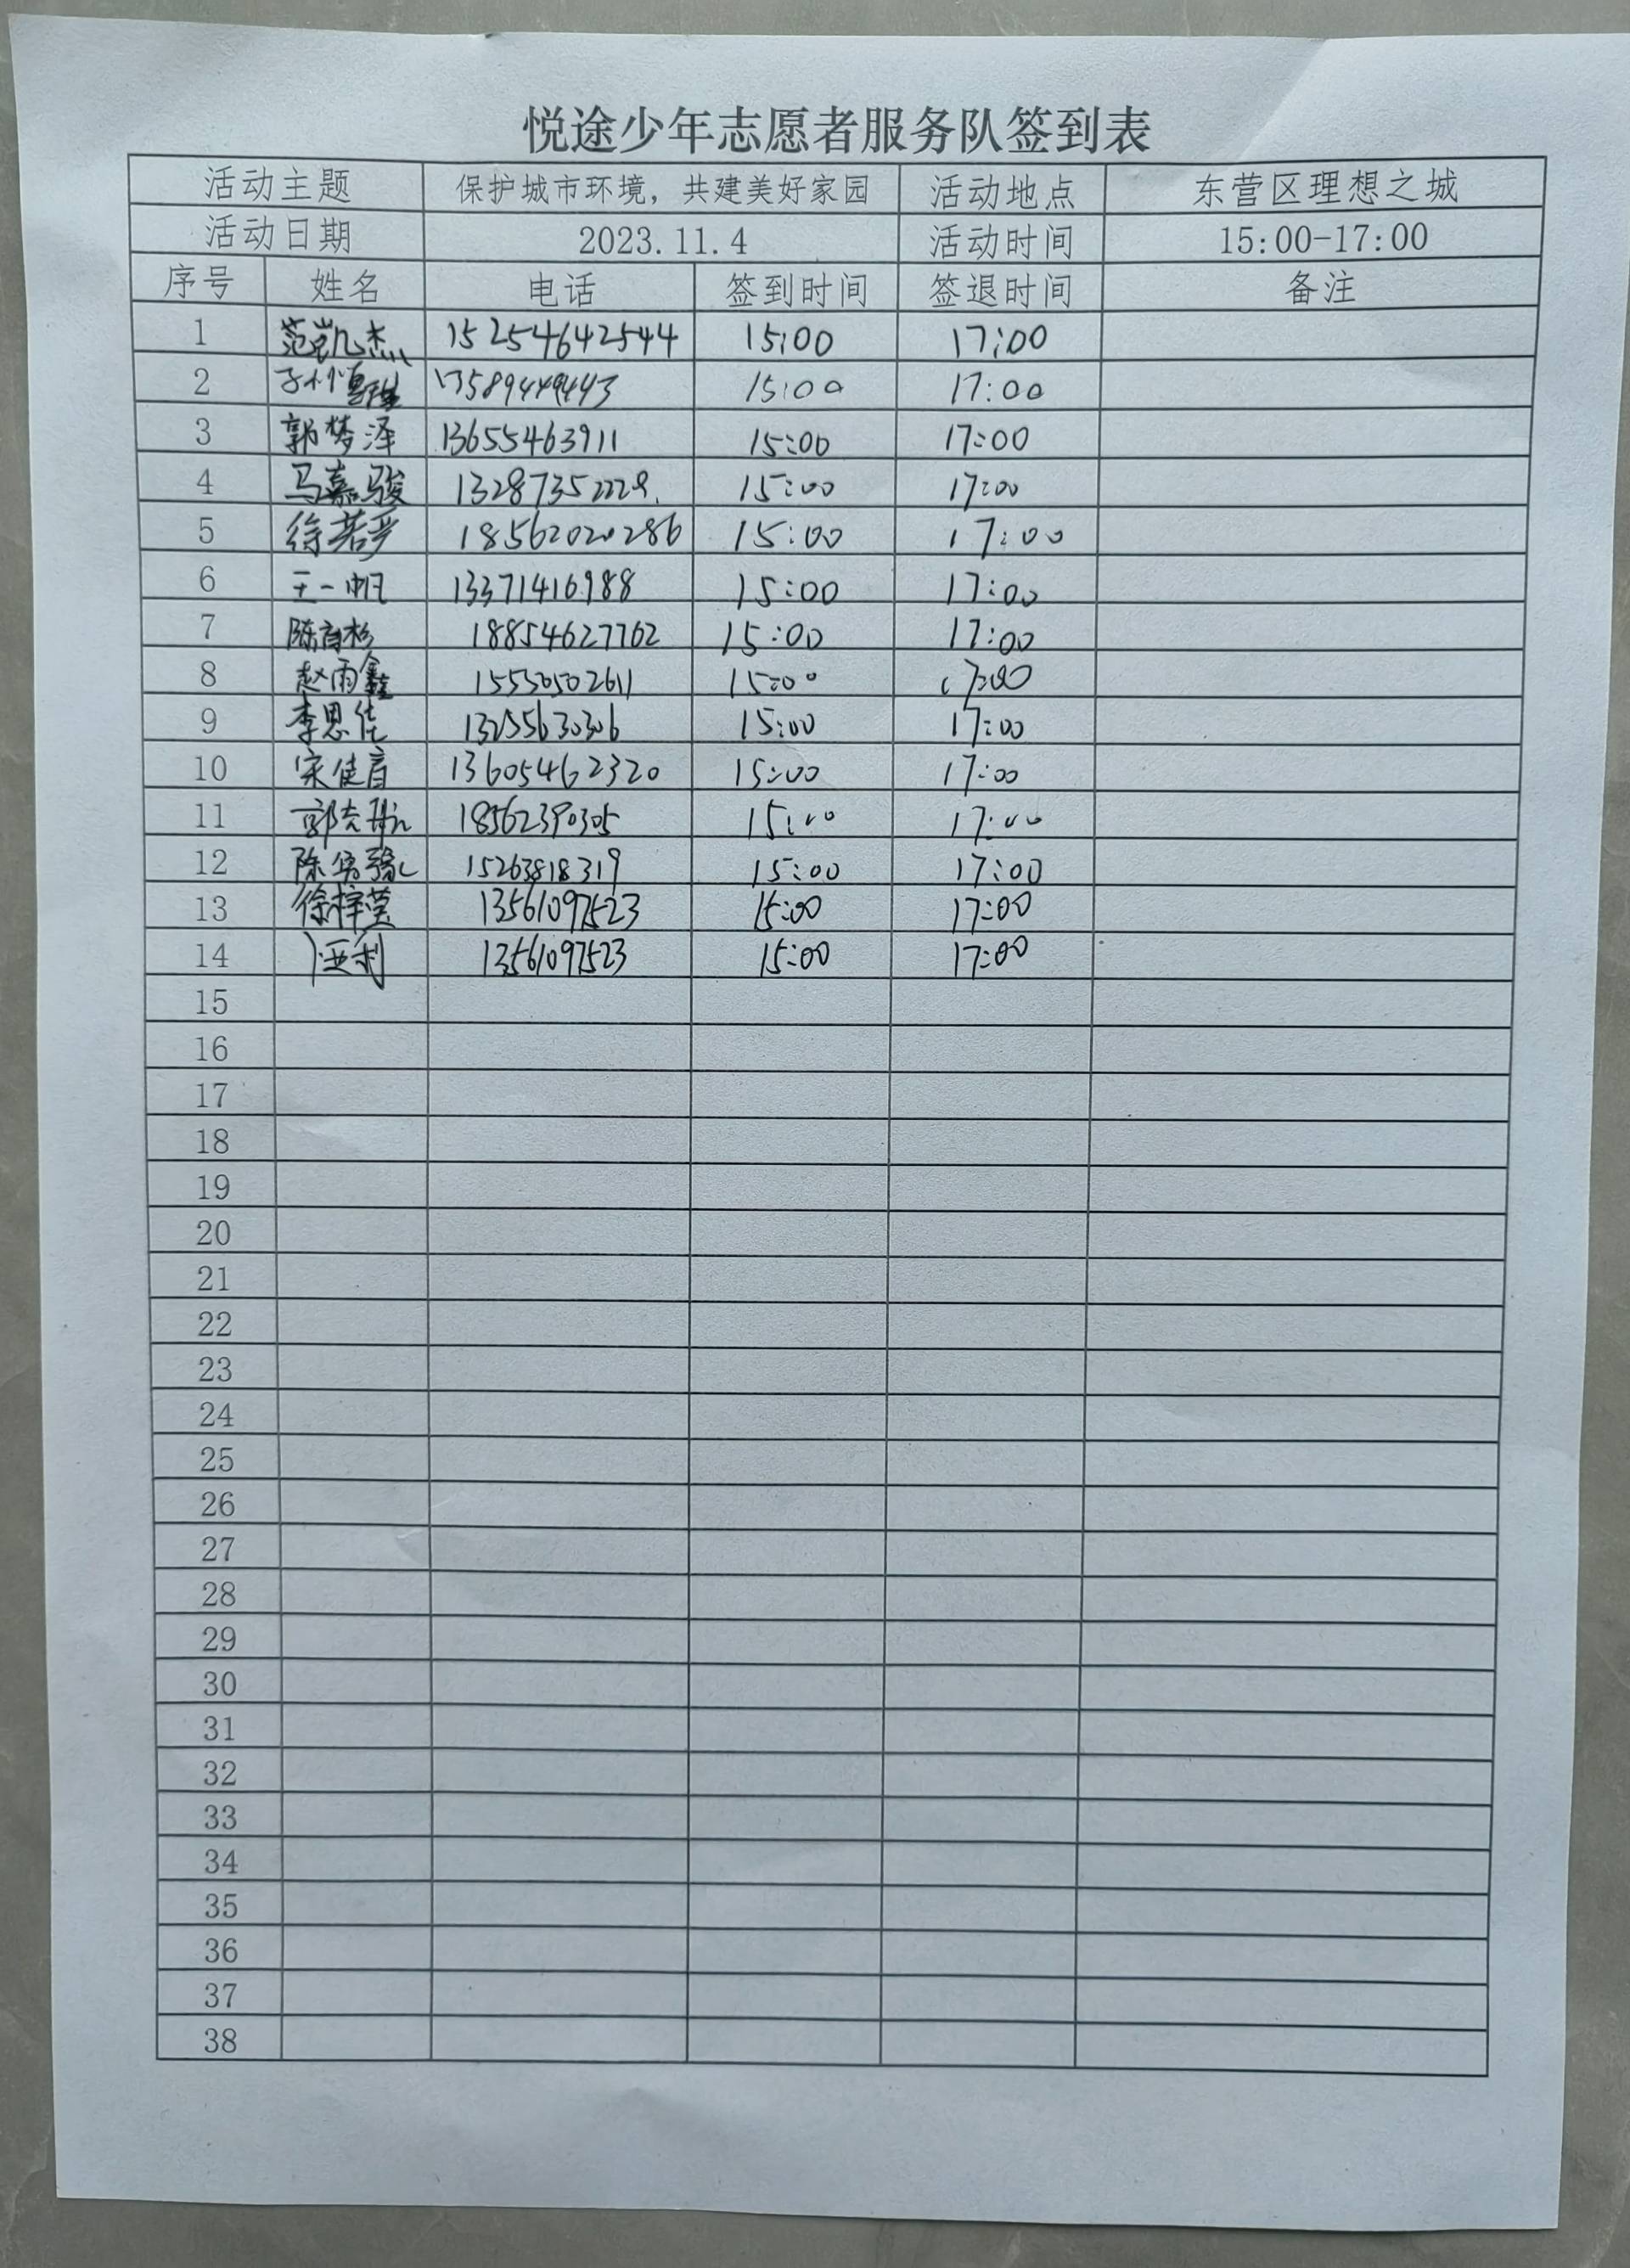 悦途少年志愿者服务队签到表
活动主题 保护城市环境，共建美好家园 活动地点 东营区理想之城
活动日期 2023.11.4 活动时间 15:00-17:00
序号 姓名 电话 签到时间 签退时间 备注
1 范凯杰 15254642544 15:00 17:00
2 15:00 17:00
3 郭梦泽 13655463911 15:00 17:00
4 马嘉骏 15:00 17:00
5 徐若 18562020286 15:00 17:00
6 王一帆 13371416988 15:00 17:00
7 陈 杉 18854627762 15:00 17:00
8 赵雨鑫 15550502611 15:00 17:00
9 李思佳 15:00 17:00
10 宋佳音 13605462320 15:00 17:00
11 18562390305 15:00 17:00
12 陈 15263818319 15:00 17:00
13 徐梓莹 13561097523 15:00 17:00
14 亚利 13561097523 15:00 17:00
15
16
17
18
19
20
21
22
23
24
25
26
27
28
29
30
31
32
33
34
35
36
37
38